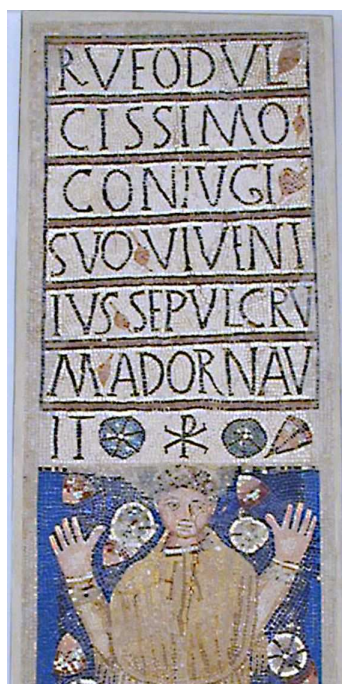 RUFODUL
CISSIMO
CONIUGI
SUO VIVENT
IUS SEPULCRU
M ADORNAV
IT ☧